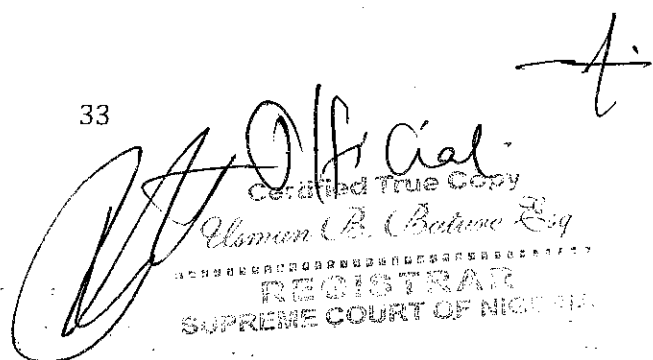 33
Official.
Certified True Copy
Usman B. Bature Esq
REGISTRAR
SUPREME COURT OF NIGERIA